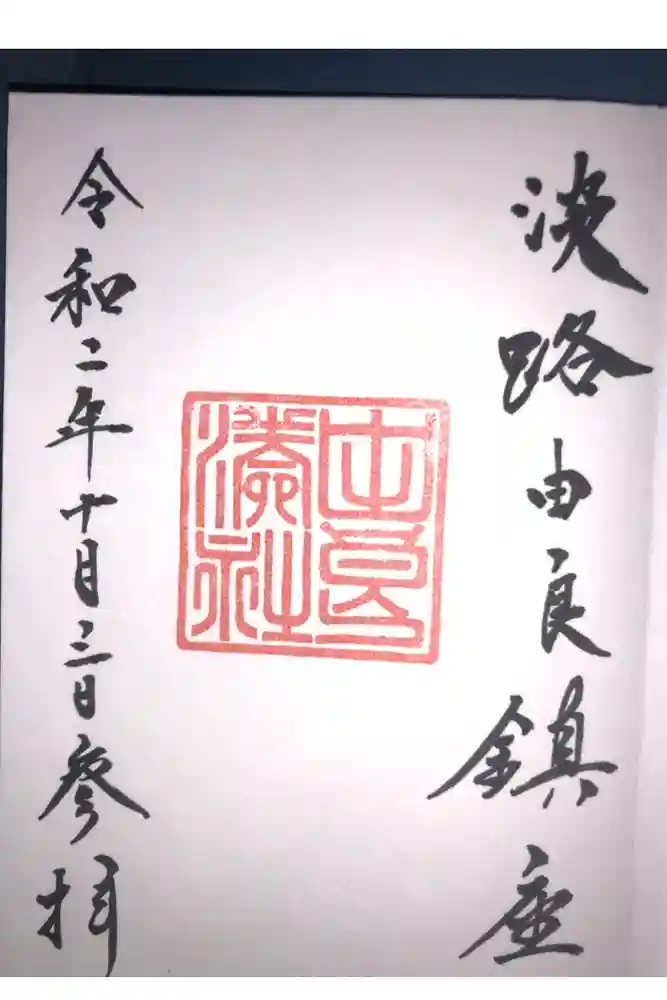 淡路由良鎮座
由良
湊社
令和二年十月三日参拝